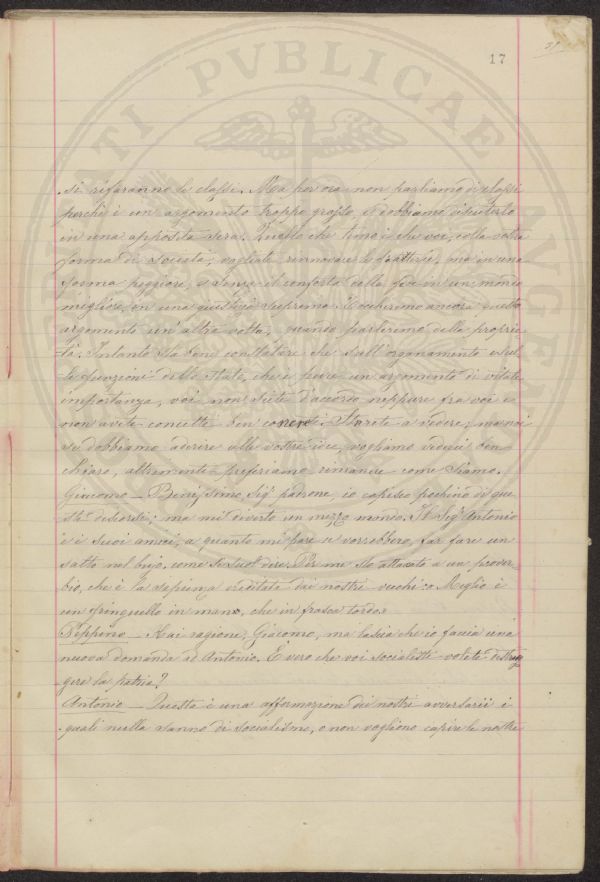 17
si rifaranno le classi. Ma per ora non parliamo di classi
perchè è un argomento troppo grosso, e dobbiamo discuterlo
in una apposita sera. Quello che temo è che voi, colla vostra
forma di società, vogliate rinnovare le caste, ma in una
forma peggiore, e senza il conforto della fede in un mondo
migliore, in una giustizia suprema. Toccheremo ancora questo
argomento un' altra volta, quando parleremo della proprie
tà. Intanto sta bene constatare che sull' organamento e sul
le funzioni dello Stato, che è pure un argomento di vitale
importanza, voi non siete d'accordo neppure fra voi e
non avete concetti ben concreti. Starete a vedere; ma noi
se dobbiamo aderire alle vostre idee, vogliamo vederci ben
chiaro, altrimenti preferiamo rimanere come siamo.
Giacomo — Benissimo, Sig. padrone, io capisco pochino di que
sti discorsi; ma mi diverto un mezzo mondo. Il Sig. Antonio
e i suoi amici, a quanto mi pare, vorrebbero far fare un
salto nel bujo, come si suol dire. Per me sto attaccato a un prover
bio, che è la sapienza ereditata dai nostri vecchi: Meglio è
un fringuello in mano, che in frasca tordo.
Peppino — Hai ragione, Giacomo, ma lascia che io faccia una
nuova domanda ad Antonio. È vero che voi socialisti volete distrug
gere la patria?
Antonio — Questa è una affermazione dei nostri avversarii i
quali nulla sanno di socialismo, o non vogliono capire le nostre
PVBLICAE